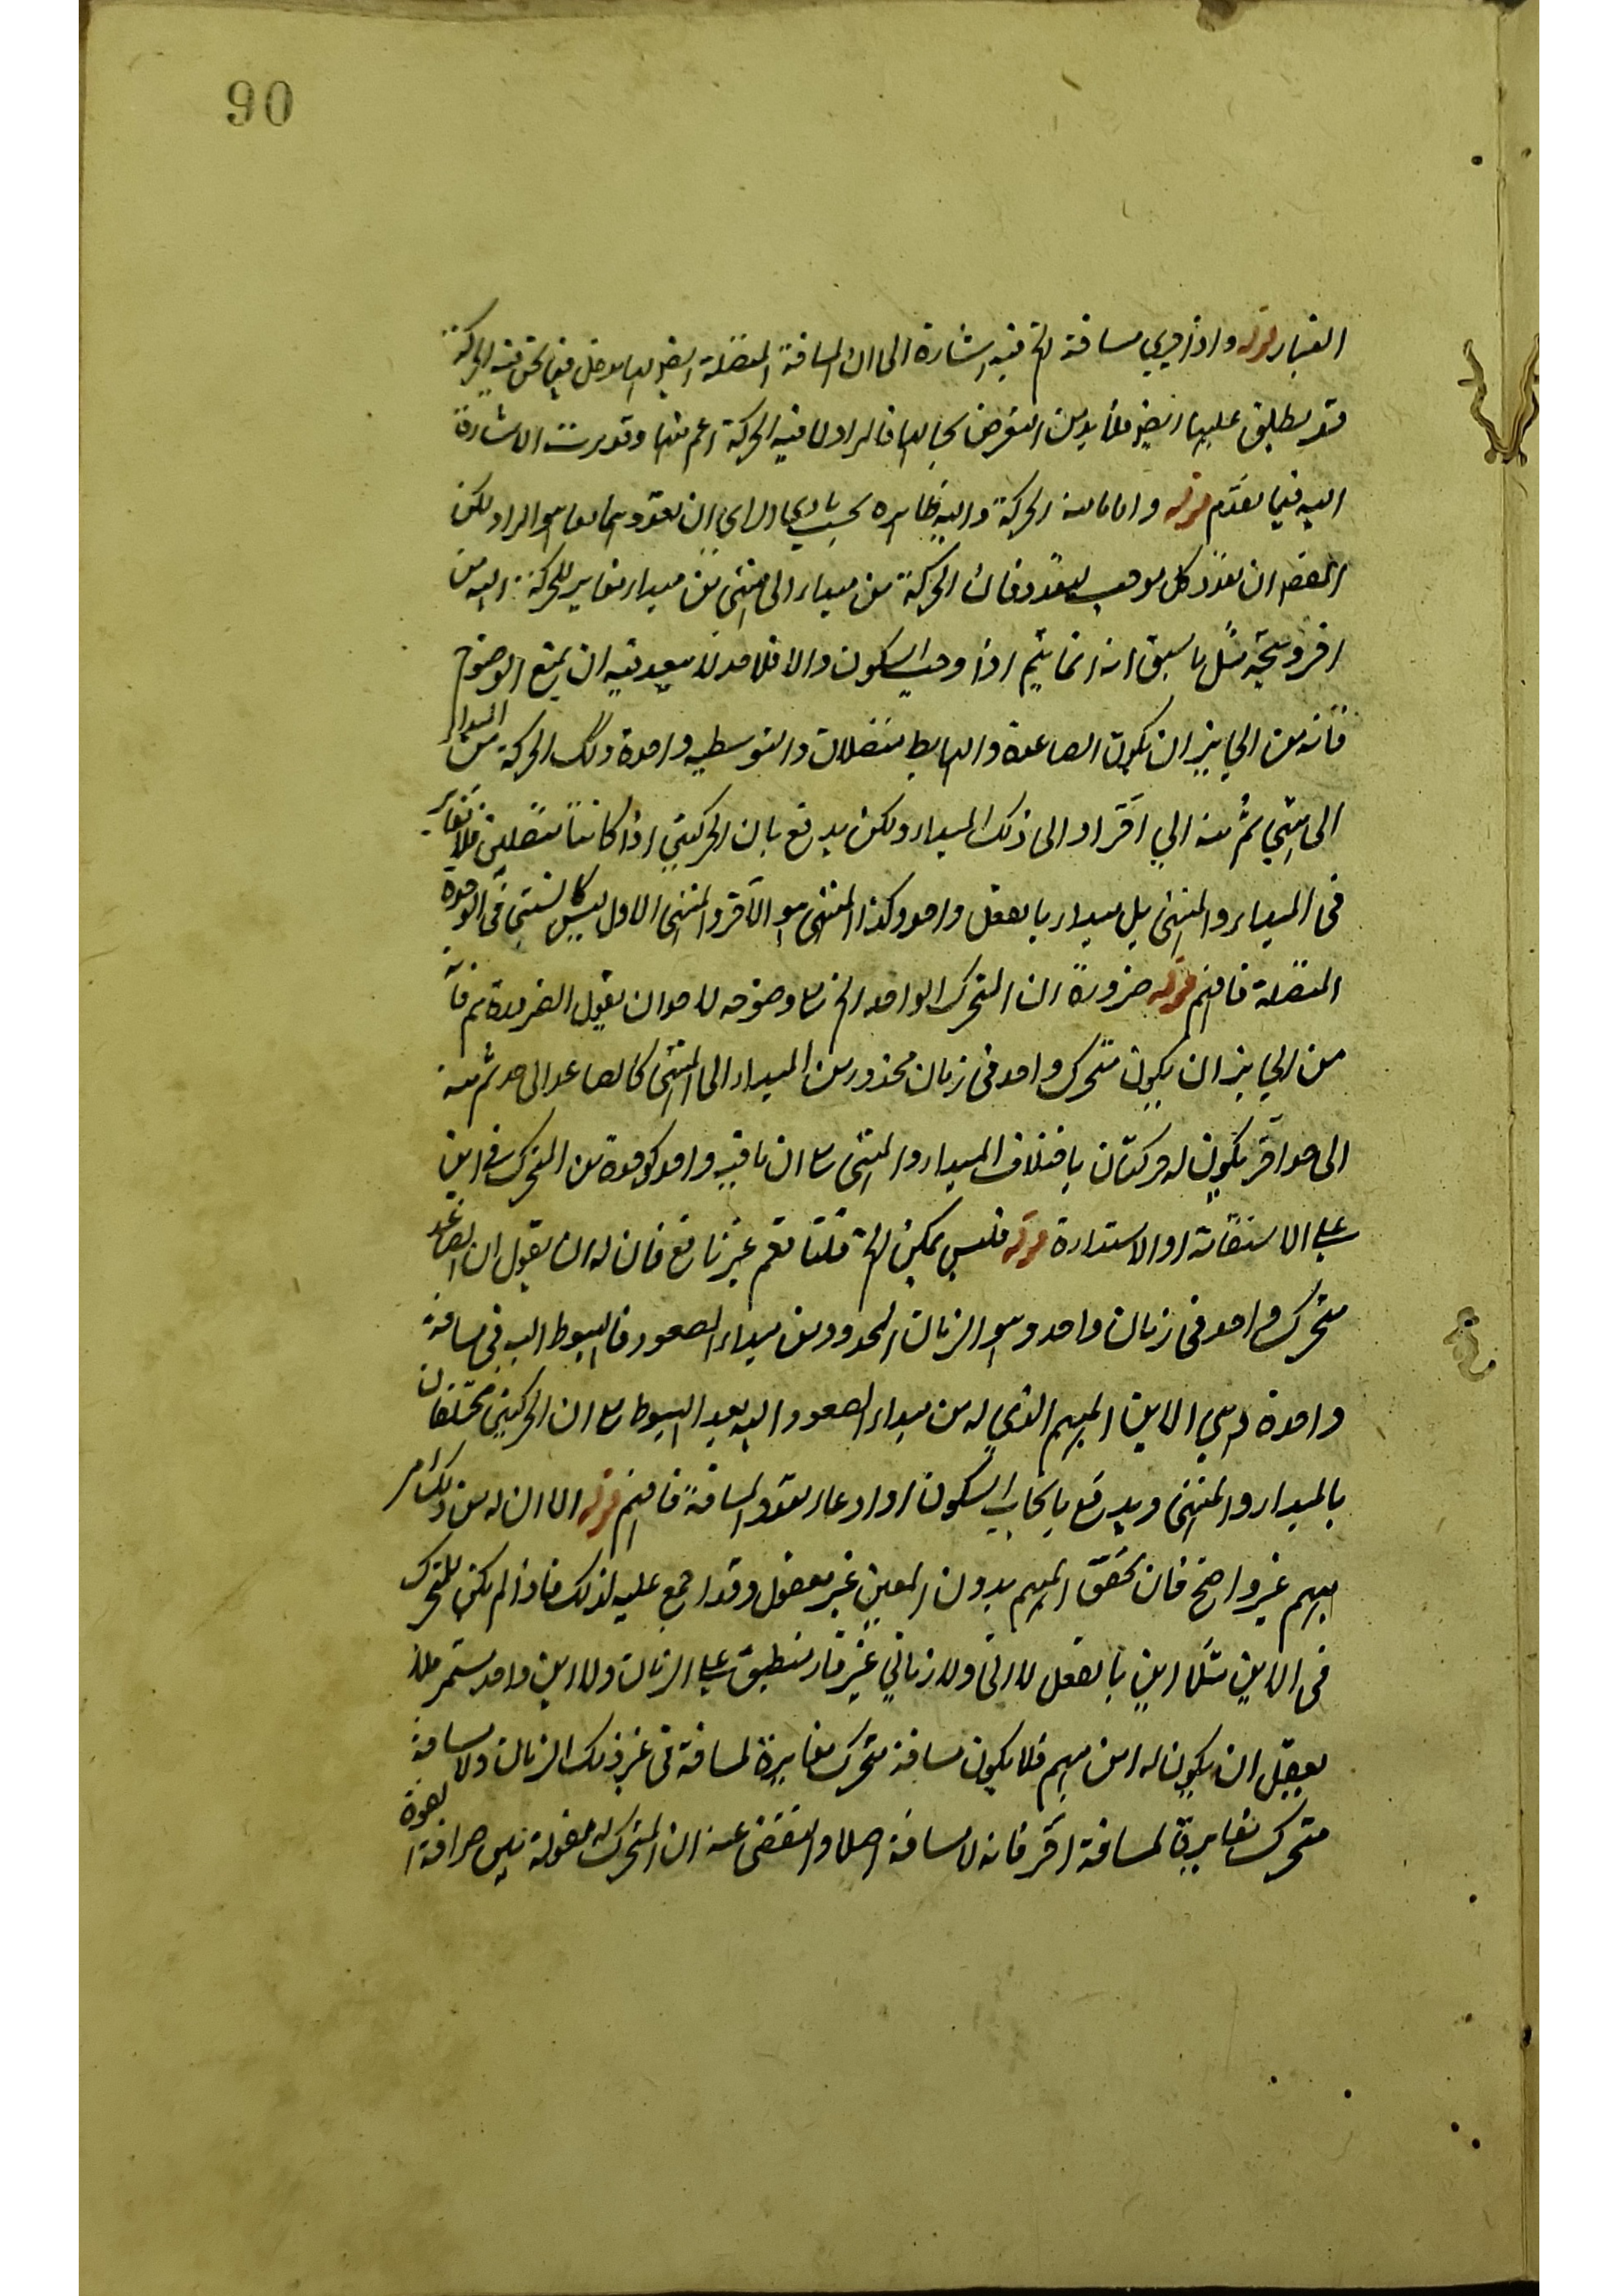 90
الغبار قوله واذ هي مسافة الخ فيه اشارة الى ان المسافة المتصلة ايضا لها دخل فيما لحق فيه الحركة
قد يطلق عليها ايضا فلا بد من التعرض بحالها فالمراد لما فيه الحركة اعم منها وقد مرت الاشارة
اليه فيما تقدم قوله واما ما منه الحركة واليه ظاهره بحسب بادي الراي ان تعددهما معا هو المراد لكن
ان تعدد كل موجب لتعدد فان الحركة من مبداء الى منتهى من مبداء مغاير للحركة اليه من
اخر ويتجه مثل ما سبق انه انما يتم اذا وجب السكون والا فلا حد لا يبعد فيه ان يمنع الوضوح
فانه من الجايز ان يكون الصاعدة والهابط متصلات والتوسطيه واحدة وتلك الحركة من المبداء
الى شي ثم منه الى اخر او الى ذلك المبداء ولكن يدفع بان الحركتين اذا كانتا متصلتين فلا تغاير
فى المبداء والمنتهى بل مبداء بالفعل واحد وكذا المنتهى هو الآخر والمنتهى الاول ليس كالمنتهى فى الوحدة
المتصلة فافهم قوله ضرورة ان المتحرك الواحد الخ وضوحه لاحد ان يقول الضرورة ثم فانه
من الجايز ان يكون متحرك واحد فى زمان محدود من المبداء الى المنتهى كالصاعد الى حد ثم منه
الى حد آخر يكون له حركتان باختلاف المبداء والمنتهى مع ان ما فيه واحد كوحدة من المتحرك فى اين
على الاستقامة او الاستدارة قوله فليس يمكن الخ قلنا نعم غير نافع فان له ان يقول ان الصاعد
متحرك واحد فى زمان واحد وهو الزمان المحدود من مبداء الصعود فالهبوط اليه فى مسافة
واحدة وهي الاين المبهم الذي له من مبداء الصعود اليه بعد الهبوط مع ان الحركتين مختلفان
بالمبداء والمنتهى ويدفع بايجاب السكون او ادعاء تعدد المسافة فافهم قوله الا ان له من ذلك امر
مبهم غير واضح فان تحقق المبهم بدون المعين غير معقول وقد اجمع عليه لذلك فاذا لم يكن للمتحرك
فى الاين مثلا اين بالفعل لا انى ولا زماني غير قار منطبق على الزمان ولا اين واحد مستمر فلا
يعقل ان يكون له اين مبهم فلا يكون مسافة متحرك مغايرة لمسافة فى غير ذلك الزمان ولا مسافة
متحرك مغايرة لمسافة آخر فانه لا مسافة اصلا والتفصى عنه ان المتحرك له مقولة بين صرافة القوة